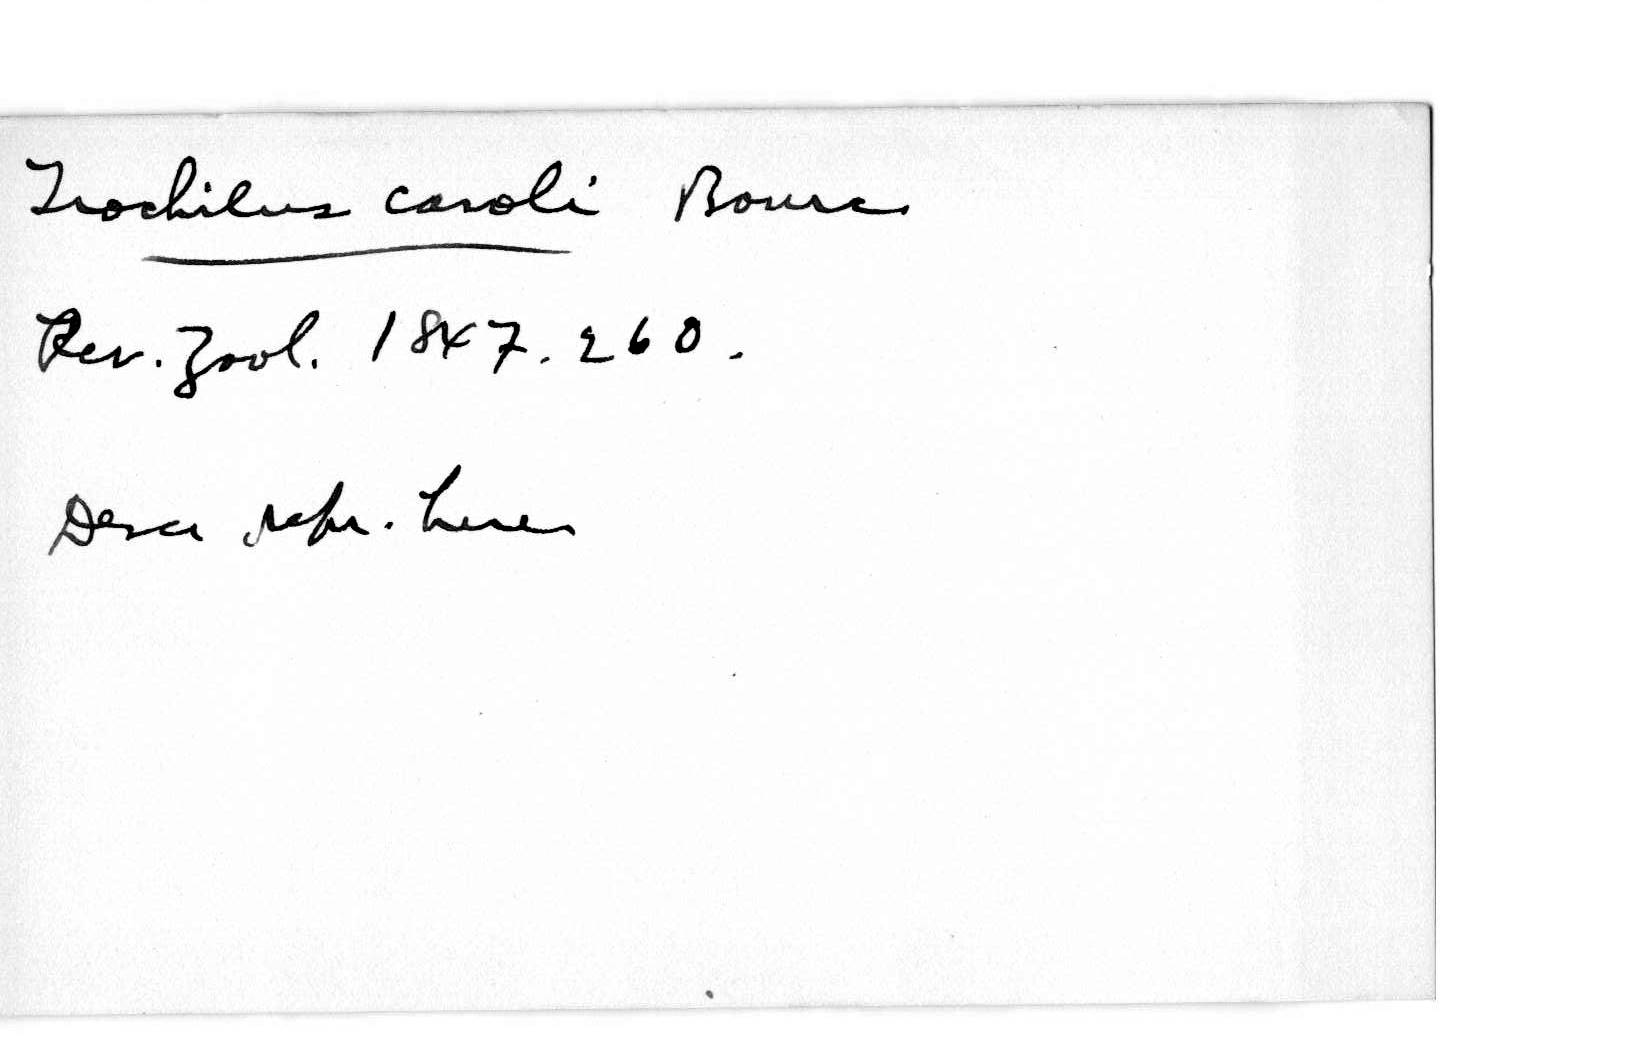 Trochilus caroli Bourc.
Rev. Zool. 1847. 260.
Descr repr. here